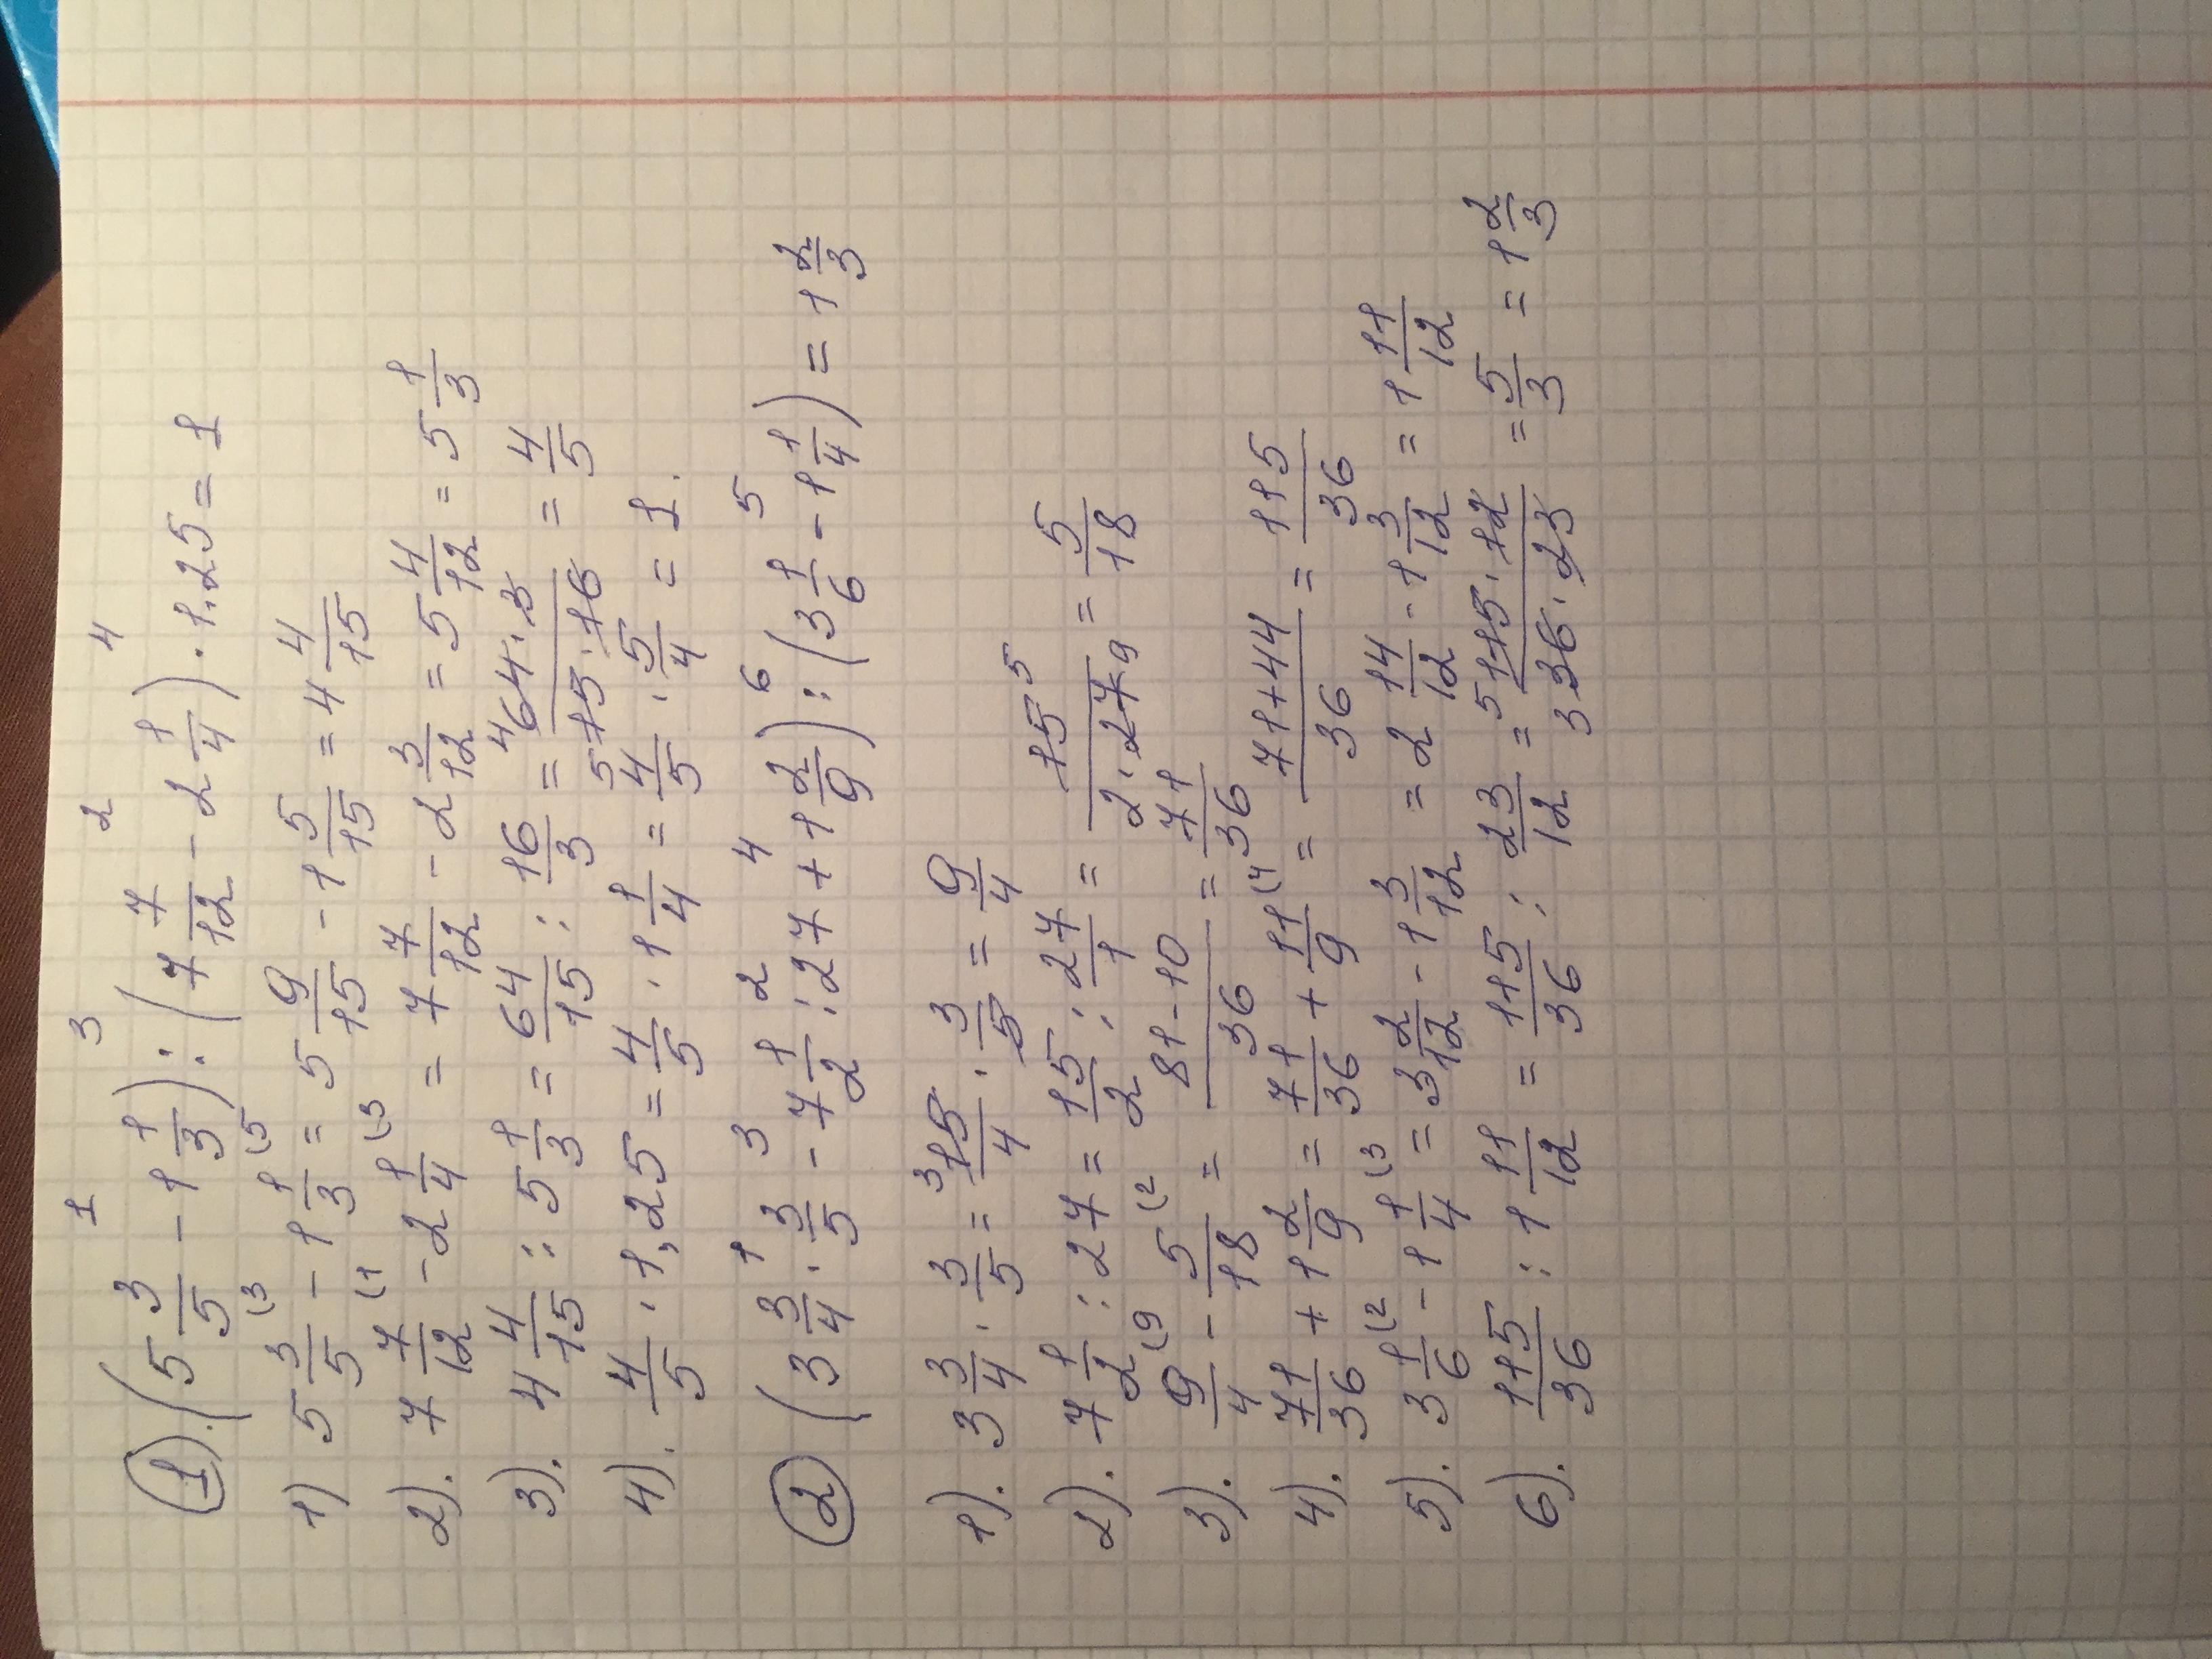 1 3 2 4
1). (5 3/5 - 1 1/3) : (7 7/12 - 2 1/4) · 1,25 = 1
1) 5 3/5 (3 - 1 1/3 (5 = 5 9/15 - 1 5/15 = 4 4/15
2). 7 7/12 (1 - 2 1/4 (3 = 7 7/12 - 2 3/12 = 5 4/12 = 5 1/3
3). 4 4/15 : 5 1/3 = 64/15 : 16/3 = 4 64 · 3 / 5 15 · 16 = 4/5
4). 4/5 · 1,25 = 4/5 · 1 1/4 = 4/5 · 5/4 = 1.
1 3 2 4 6 5
2 (3 3/4 · 3/5 - 7 1/2 : 27 + 1 2/9) : (3 1/6 - 1 1/4) = 1 2/3
1). 3 3/4 · 3/5 = 3 15/4 · 3/5 = 9/4
2). 7 1/2 : 27 = 15/2 : 27/1 = 15 5 / 2 · 27 9 = 5/18
3). 9/4 (9 - 5/18 (2 = 81-10/36 = 71/36
4). 71/36 + 1 2/9 = 71/36 + 11/9 (4 = 71+44/36 = 115/36
5). 3 1/6 (2 - 1 1/4 (3 = 3 2/12 - 1 3/12 = 2 14/12 - 1 3/12 = 1 11/12
6). 115/36 : 1 11/12 = 115/36 : 23/12 = 5 115 · 12 / 3 36 · 23 = 5/3 = 1 2/3